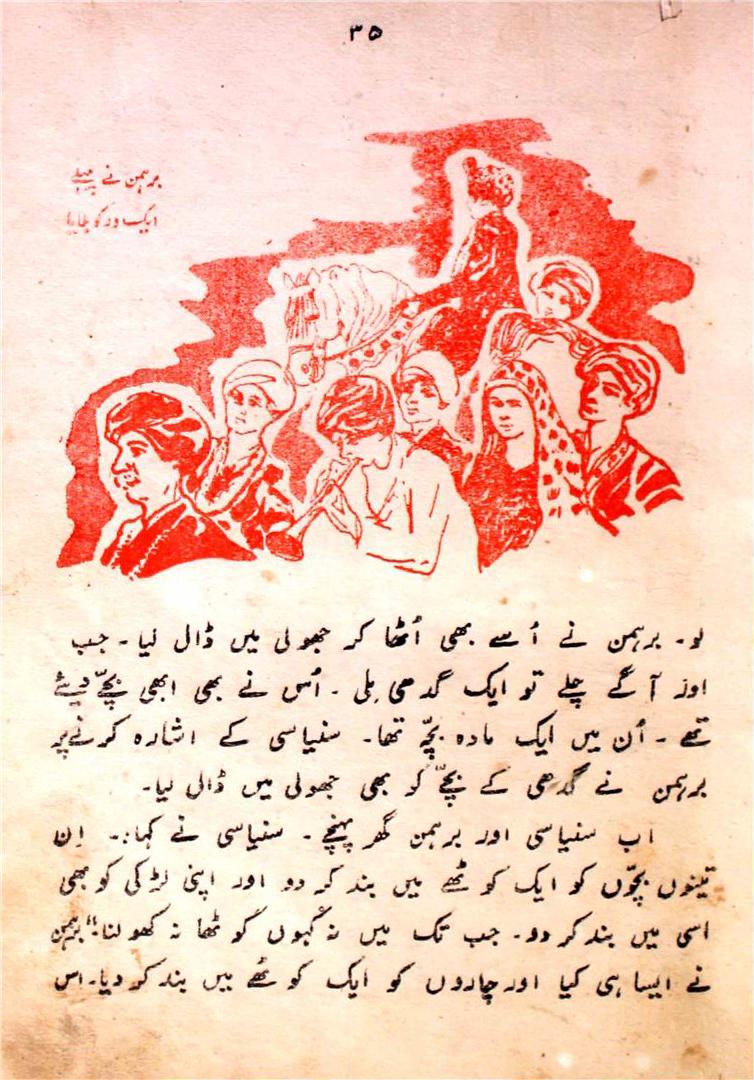 ۳۵
برہمن نے پہلے
ایک ور کو
لو۔ برہمن نے اُسے بھی اُٹھا کر جھولی میں ڈال لیا ۔ جب
اور آگے چلے تو ایک گدھی ملی ۔ اُس نے بھی ابھی بچّے دیئے
تھے ۔ اُن میں ایک مادہ بچّہ تھا۔ سنیاسی کے اشارہ کرنے پر
برہمن نے گدھی کے بچّے کو بھی جھولی میں ڈال لیا۔
اب سنیاسی اور برہمن گھر پہنچے ۔ سنیاسی نے کہا:۔ اِن
تینوں بچّوں کو ایک کوٹھے میں بند کر دو اور اپنی لڑکی کو بھی
اسی میں بند کر دو۔ جب تک میں نہ کہوں کوٹھا نہ کھولنا۔" برہمن
نے ایسا ہی کیا اور چاروں کو ایک کوٹھے میں بند کر دیا۔ اس